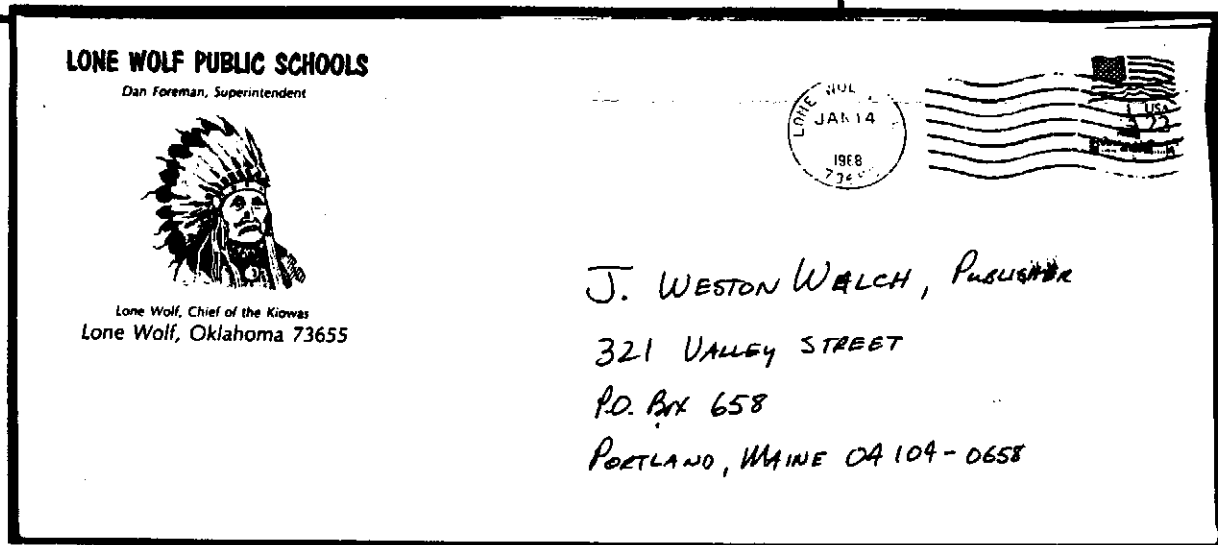 LONE WOLF PUBLIC SCHOOLS
Dan Foreman, Superintendent
Lone Wolf, Chief of the Kiowas
Lone Wolf, Oklahoma 73655
LONE WOL
JAN 14
1988
USA
22
J. WESTON WALCH, PUBLISHER
321 VALLEY STREET
P.O. BOX 658
PORTLAND, MAINE 04104-0658